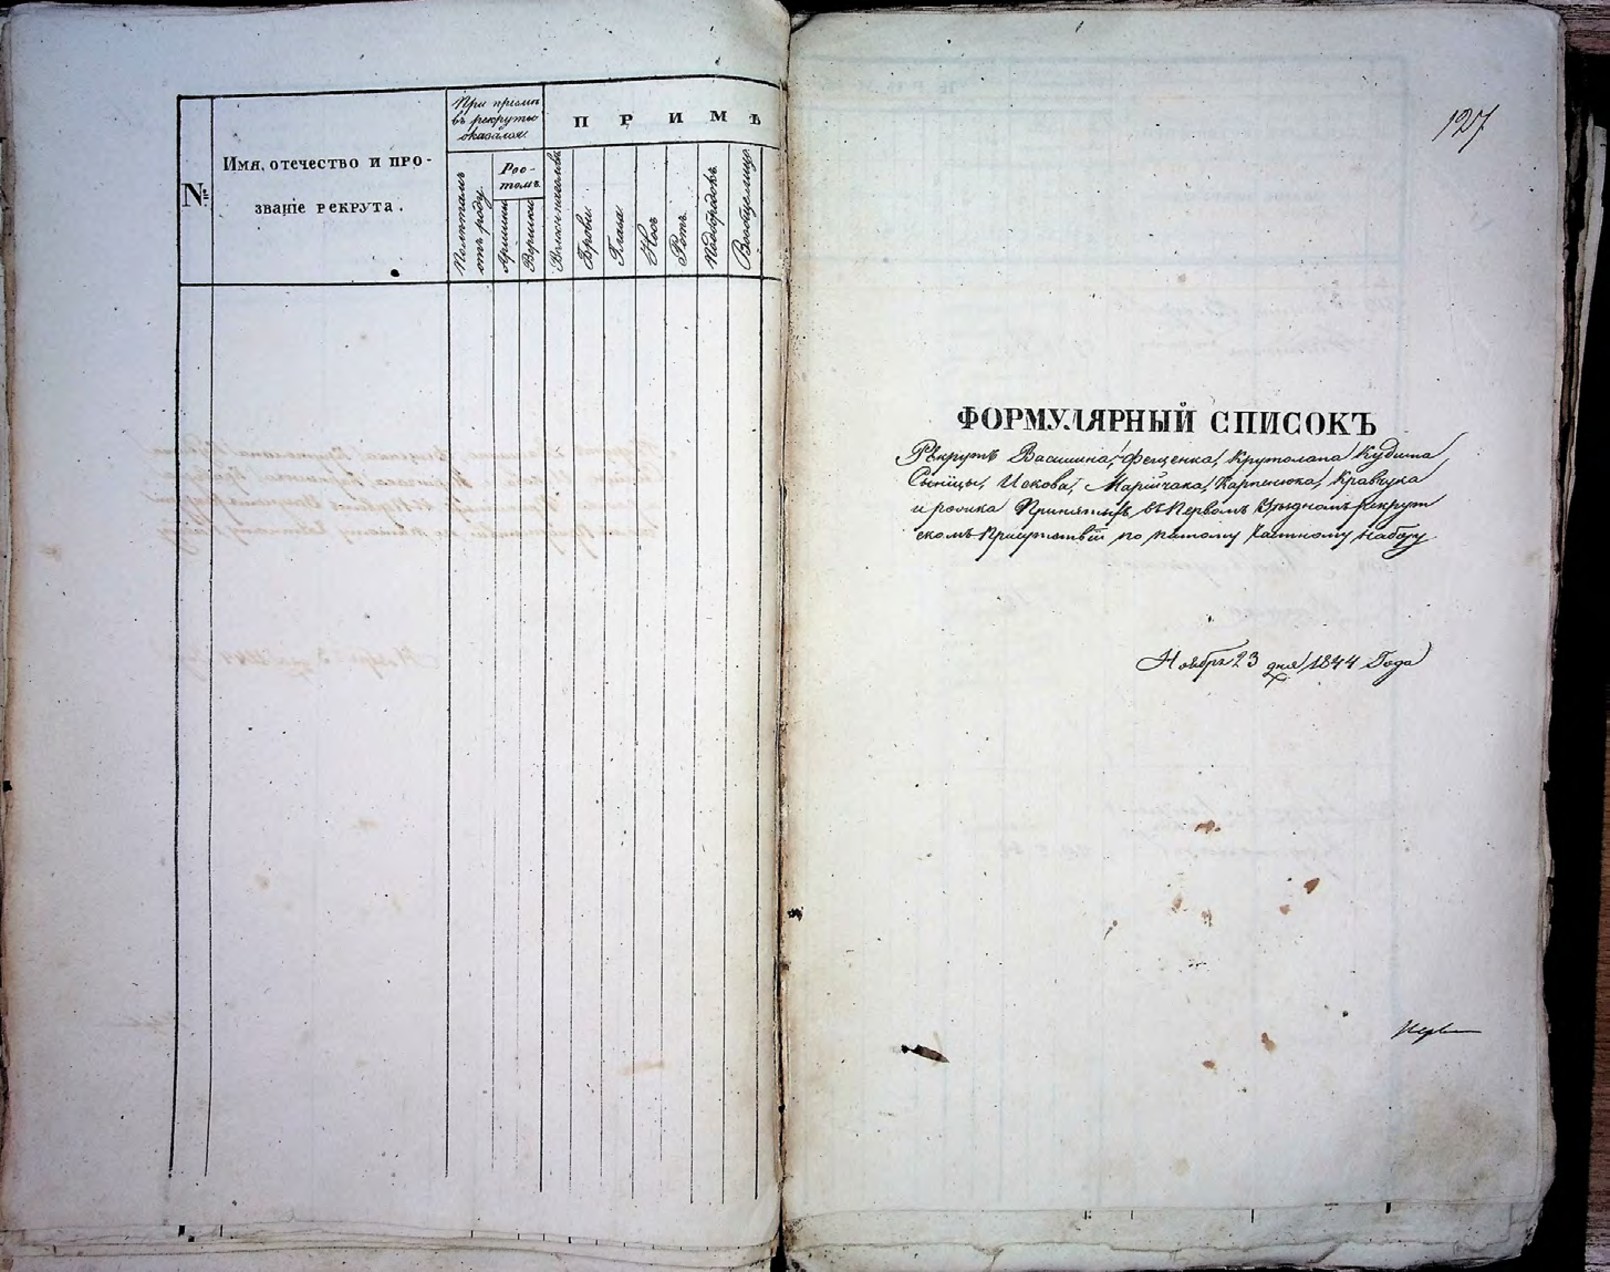 №
Имя, отечество и про-
званіе рекрута.
При пріемѣ
въ рекруты
оказался
Полѣтамъ
отъ роду
Рос-
томъ
Аршины
Вершки
ПРИМѢ
Брови
Глаза
Носъ
Ротъ
Подбородокъ
Вообщелицо
127
ФОРМУЛЯРНЫЙ СПИСОКЪ
Рекрутъ Васишина, Фещенка, Крутолапа Кудима
Сыніцы, Искова, Марійчака, Карпенюка, Кравчука
и ролика Принятыхъ въ Первомъ Уѣздномъ рекрут
скомъ Присутствіи по пятому Частному набору
Ноября 23 дня 1844 Года